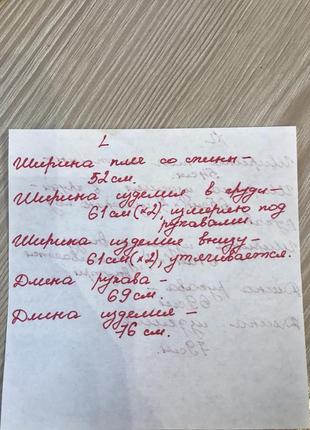 L
Ширина плеч со спины-
52 см.
Ширина изделия в груди-
61 см (×2), измеряю под
рукавами.
Ширина изделия внизу-
61 см (×2), утягивается.
Длина рукава-
69 см
Длина изделия-
76 см.